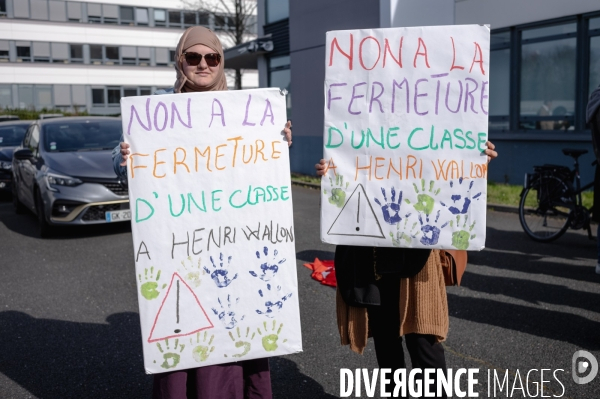 NON A LA
FERMETURE
D'UNE CLASSE
A HENRI WALLON
!
NON A LA
FERMETURE
D'UNE CLASSE
A HENRI WALLON
!
DIVERGENCE IMAGES